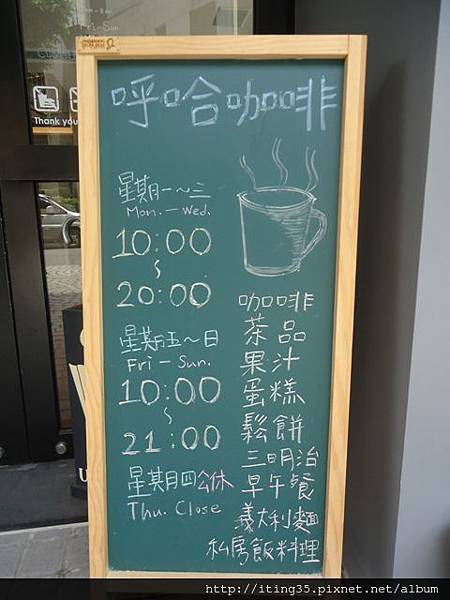 呼哈咖啡
星期一～三
Mon. — Wed.
10:00
~
20:00
星期五～日
Fri – Sun.
10:00
~
21:00
星期四公休
Thu. Close
咖啡
茶品
果汁
蛋糕
鬆餅
三明治
早午餐
義大利麵
私房飯料理
Thank you
http://iting35.pixnet.net/album